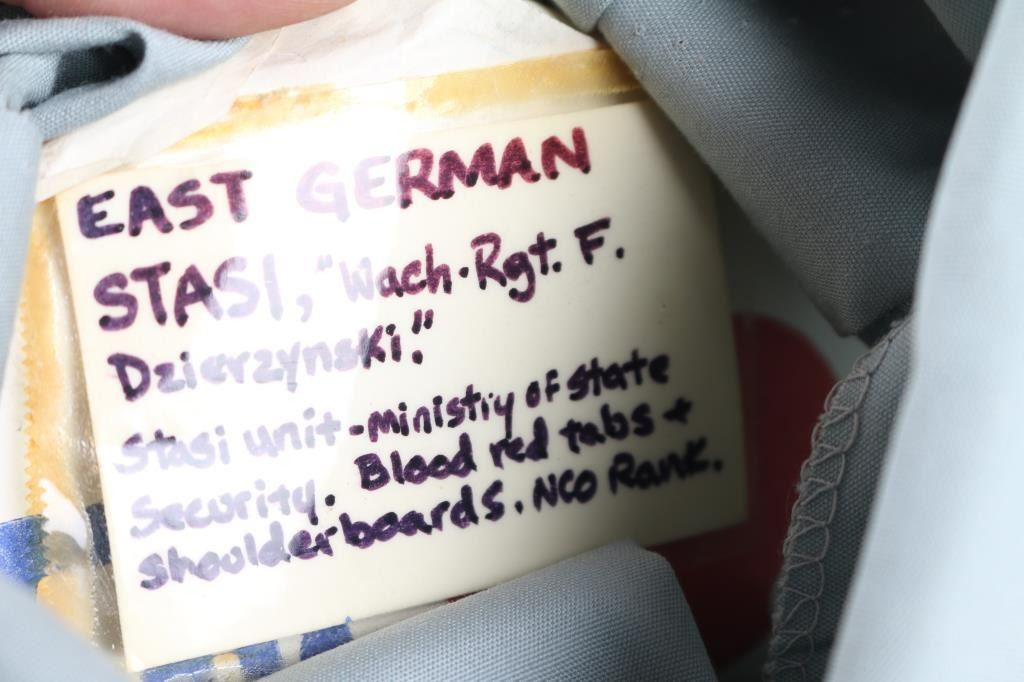 EAST GERMAN
STASI, "Wach-Rgt. F.
Dzierzynski."
Stasi unit-Ministry of State
Security. Blood red tabs +
shoulderboards. NCO Rank.